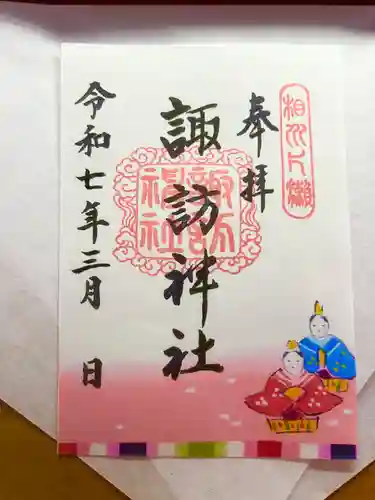 奉拝
相州片瀬
諏訪神社
諏訪神社
令和七年三月 日